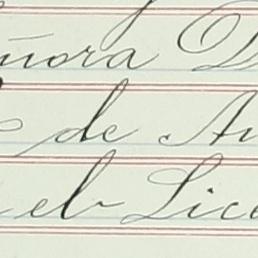 ñora D
de Au
el Lice